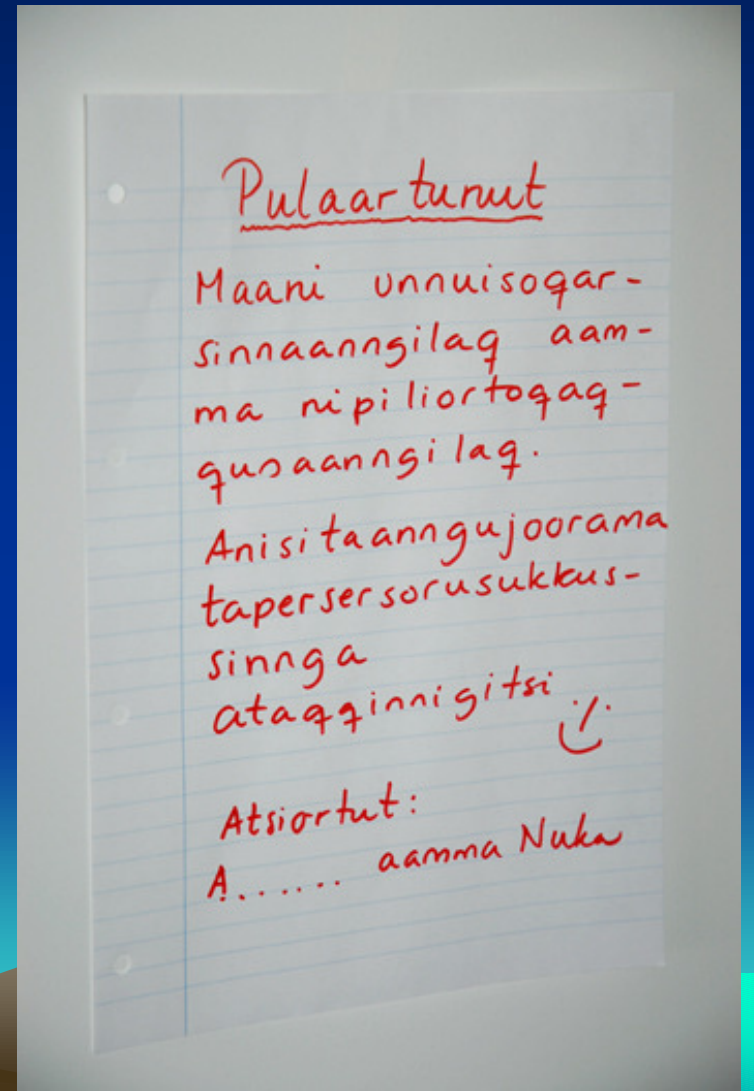 Pulaartunut
Maani unnuisoqar-
sinnaanngilaq aam-
ma nipiliortoqaq-
qusaanngilaq.
Anisitaanngujoorama
tapersersorusukkus-
sinnga
ataqqinnigitsi
Atsiortut:
A...... aamma Nuka